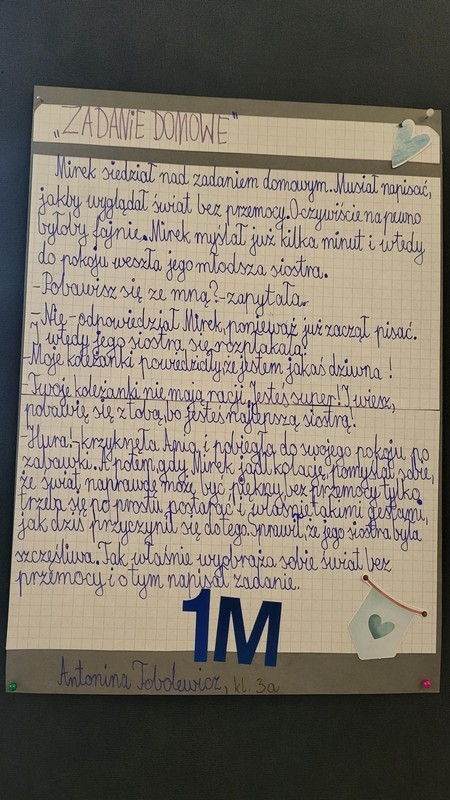 „ZADANIE DOMOWE"
Mirek siedział nad zadaniem domowym. Musiał napisać,
jakby wyglądał świat bez przemocy. Oczywiście na pewno
byłoby fajnie. Mirek myślał już kilka minut i wtedy
do pokoju weszła jego młodsza siostra.
-Pobawisz się ze mną?-zapytała.
-Nie-odpowiedział Mirek, ponieważ już zaczął pisać.
I wtedy jego siostra się rozpłakała:
-Moje koleżanki powiedziały, że jestem jakaś dziwna!
-Twoje koleżanki nie mają racji. Jesteś super! I wiesz,
pobawię się z tobą, bo jesteś najlepszą siostrą!
-Hura!-krzyknęła Ania, i pobiegła do swojego pokoju po
zabawki. A potem, gdy Mirek jadł kolację, pomyślał sobie,
że świat naprawdę może być piękny bez przemocy tylko
trzeba się po prostu postarać i właśnie takimi gestami,
jak dziś przyczynił się do tego. Sprawił, że jego siostra była
szczęśliwa. Tak właśnie wyobraża sobie świat bez
przemocy i o tym napisał zadanie.
1M
Antonina Tobolewicz, kl. 3a